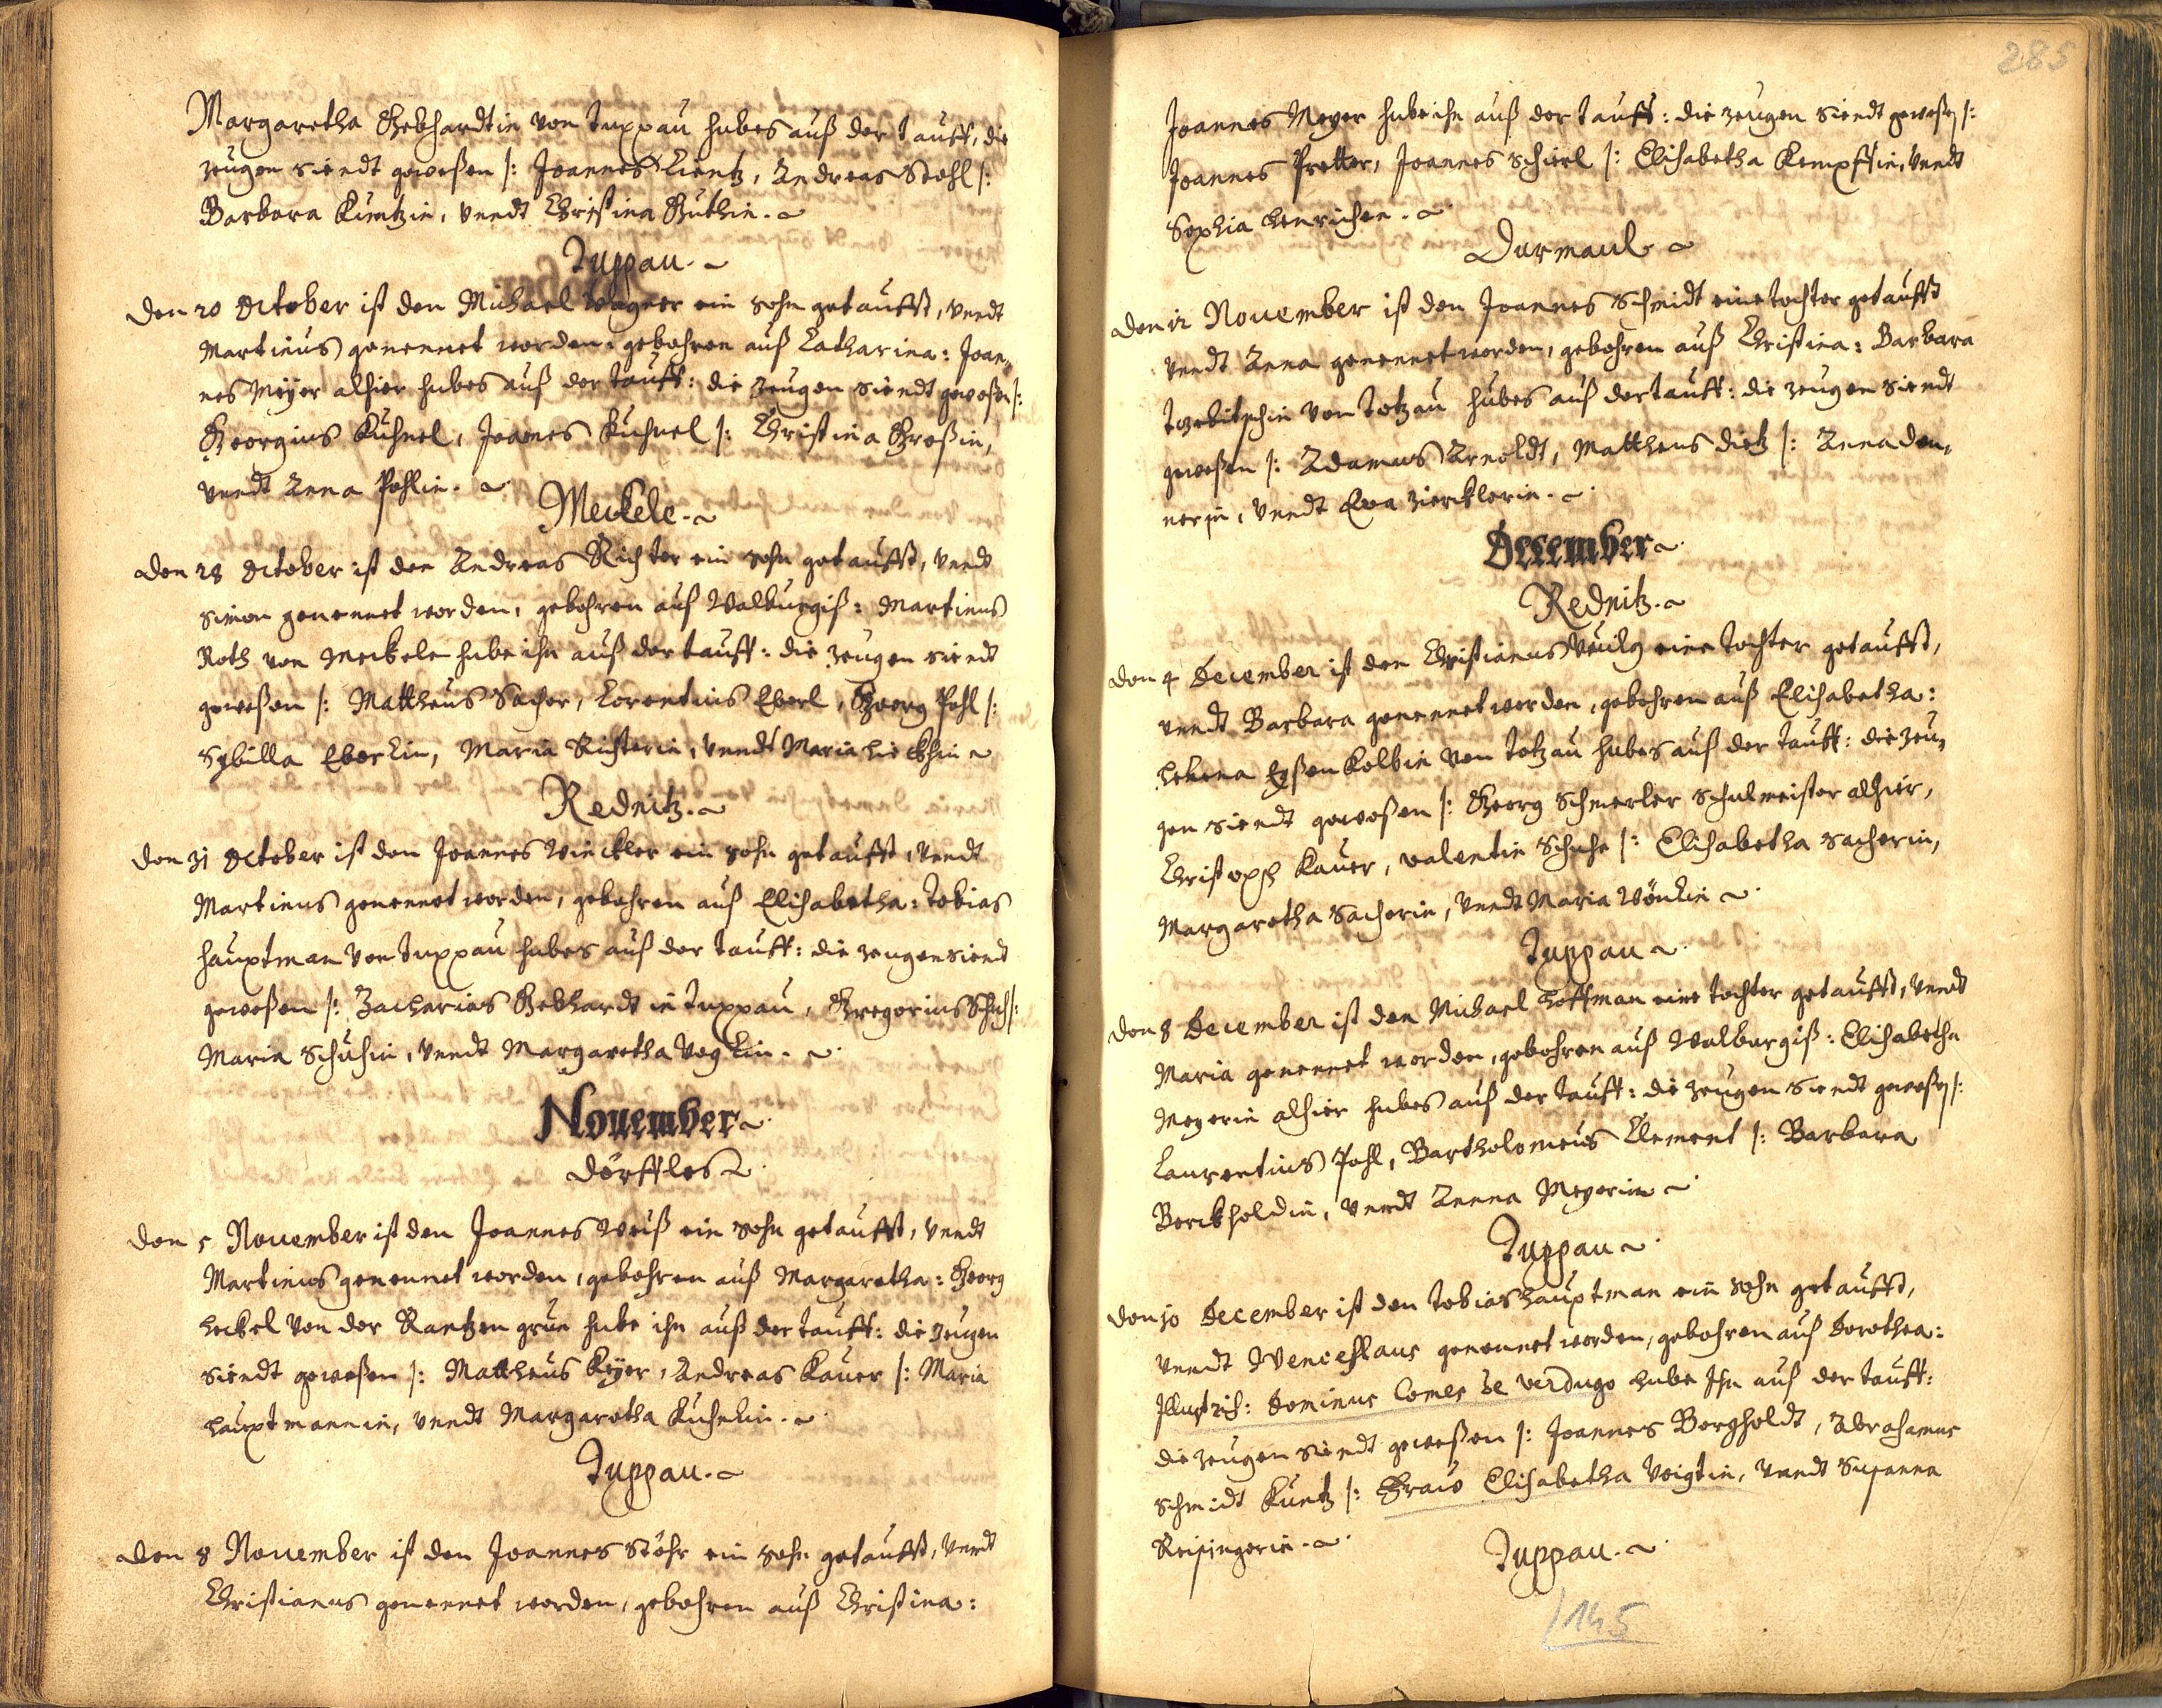 Margaretha Gebhardtin von Tuppau hubes auß der tauff, die
zeugen siendt geweßen /: Joannes Lientz, Andreas Stohl /:
Barbara Kuntzin, vndt Christina Guthin.
Tuppau.
Den 20 October ist den Michael Wagner ein sohn getaufft, vndt
Martinus genennet worden, gebohren auß Catharina: Joan-
nes Meÿer alhier hubes auß der tauff: die zeugen siendt geweßen /:
Georgius Kuhnel, Joannes Kuhnel /: Christina Großin,
vndt Anna Pohlin.
Meckele.
Den 28 October ist den Andreas Richter ein sohn getaufft, vndt
Simon genennet worden, gebohren auß Walburgiß: Martinus
Roth von Meckele hube ihn auß der tauff: die zeugen siendt
geweßen /: Mattheus Sacher, Lorentius Eberl, Georg Pohl /:
Sybilla Eberlin, Maria Richterin, vndt Maria
Rednitz.
Den 31 October ist den Joannes Winckler ein sohn getaufft, vndt
Martinus genennet worden, gebohren auß Elisabetha: Tobias
Hauptman von Tuppau hubes auß der tauff: die zeugen siendt
geweßen /: Zacharias Gebhardt in Tuppau, Gregorius Schuh /:
Maria Schuhin, vndt Margaretha Voglin.
Nouember
Dörffles
Den 5 Nouember ist den Joannes Weiß ein sohn getaufft, vndt
Martinus genennet worden, gebohren auß Margaretha: Georg
Heckel von der Rantzengrün hube ihn auß der tauff: die zeugen
siendt geweßen /: Mattheus Keÿer, Andreas Kauer /: Maria
Hauptmannin, vndt Margaretha Kuhnlin.
Tuppau.
Den 8 Nouember ist den Joannes Stöhr ein sohn getaufft, vndt
Christianus genennet worden, gebohren auß Christina:
285
Joannes Meyer hube ihn auß der tauff: die zeugen siendt geweßen /:
Joannes Pretter, Joannes Schierl /: Elisabetha Kempffin, vndt
Sophia Henrichen.
Durmaul
Den 12 Nouember ist den Joannes Schmidt eine tochter getaufft
vndt Anna genennet worden, gebohren auß Christina: Barbara
von Totzau hubes auß der tauff: die zeugen siendt
geweßen /: Adamus Arnoldt, Mattheus Dietz /: Anna Den-
nerin, vndt Eva Ziercklerin.
December
Rednitz.
Den 4 December ist den Christianus eine tochter getaufft,
vndt Barbara genennet worden, gebohren auß Elisabetha:
Helena Eyßenkolbin von Totzau hubes auß der tauff: die zeu-
gen siendt geweßen /: Georg Schmerler Schulmeister alhier,
Christoph Kauer, Valentin Schuhe /: Elisabetha Sacherin,
Margaretha Sacherin, vndt Maria
Tuppau
Den 8 December ist den Michael Hoffman eine tochter getaufft, vndt
Maria genennet worden, gebohren auß Walburgiß: Elisabetha
Meyerin alhier hubes auß der tauff: die zeugen siendt geweßen /:
Laurentius Pohl, Bartholomeus Clement /: Barbara
Berckholdin, vndt Anna Meyerin
Tuppau
Den 10 December ist den Tobias Hauptman ein sohn getaufft,
vndt Wenceslaus genennet worden, gebohren auß Dorothea:
Illustris: Dominus Comes de Verdugo hube Ihn auß der tauff:
die zeugen siendt geweßen /: Joannes Bergholdt, Abrahamus
Schmidt Kuntz /: Fraw Elisabetha Voigtin, vndt Susanna
Reisingerin.
Tuppau.
145